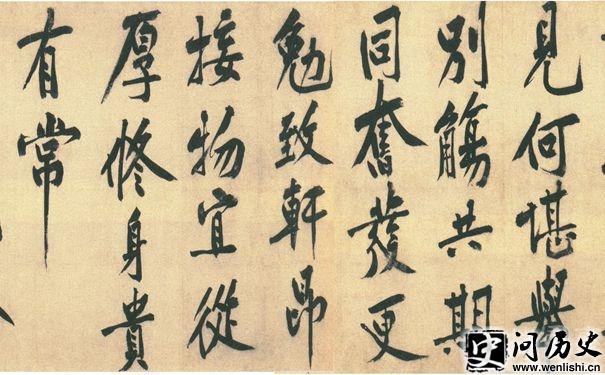 見何堪舉
別觴共期
同奮發更
勉致軒昂
接物宜從
厚修身貴
有常
问历史
www.wenlishi.cn